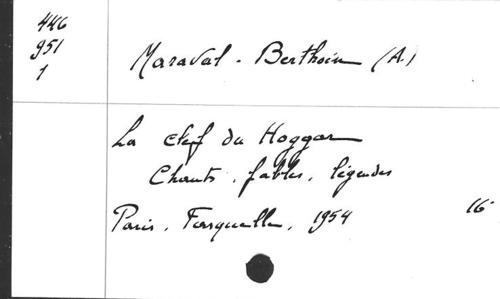 446
951
1
Maraval - Berthoin (A.)
La clef du Hoggar
Chants, fables, légendes
Paris, Fasquelle, 1954 16°